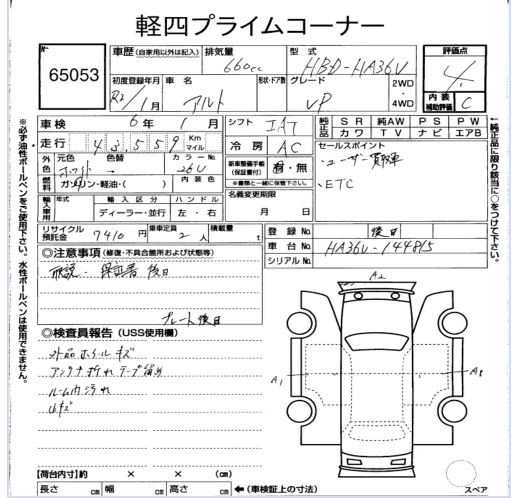 軽四プライムコーナー
No
65053
車歴 (自家用以外は記入)
排気量
660cc
型式
HBD-HA36V
評価点
4
初度登録年月
R2/1月
車名
アルト
形状・ドア数
グレード
VP
2WD
4WD
内装補助評価
C
車検
6年1月
シフト
IAT
純正品
SR 純AW PS PW
カワ TV ナビ エアB
走行
43,559
Km
マイル
冷房
AC
セールスポイント
・ユーザー買取車
・ETC
外色
元色
色替
カラーNo
ホワイト→
26U
新車整備手帳
(保証書付)
有・無
※書類と一緒に保管下さい。
燃料
ガソリン・軽油・( )
内装色
名義変更期限
月 日
輸入車用
年式
輸入区分
ハンドル
ディーラー・並行
左・右
リサイクル預託金
7410円
乗車定員
2人
積載量
t
登録No
後日
車台No
HA36V-144815
シリアルNo
◎注意事項 (修復・不具合箇所および状態等)
取説・保証書 後日
プレート後日
◎検査員報告 (USS使用欄)
外品ホイールキズ
アンテナ折れテープ留め
ルーム内汚れ
小キズ
A2
A1
スペア
【荷台内寸】約 × × (cm)
長さ cm 幅 cm 高さ cm ←(車検証上の寸法)
※必ず油性ボールペンをご使用下さい。水性ボールペンは使用できません。
↑純正品に限り該当に○をつけて下さい。